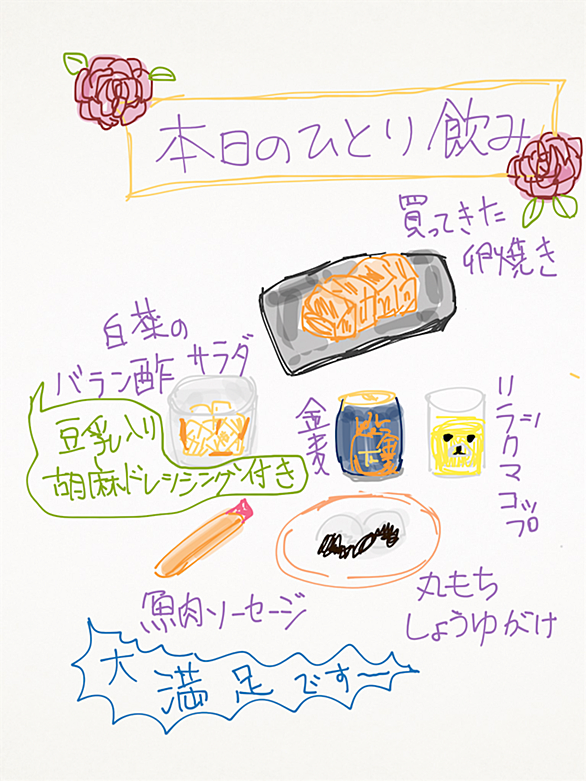 本日のひとり飲み
買ってきた
卵焼き
白菜の
バラン酢サラダ
豆乳入り
胡麻ドレシシング付き
金麦
金麦
リラックマコップ
魚肉ソーセージ
丸もち
しょうゆがけ
大満足でーす